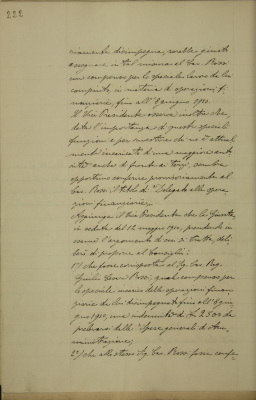 222
riamente disimpegna, sarebbe giusto
assegnare in tal misura al Cav. Rossi
un compenso per lo speciale lavoro da lui
compiuto, in materia di operazioni fi-
nanziarie fino all' giugno 1910.
Il Vice Presidente osserva inoltre che,
data l'importanza di queste speciali
funzioni e per mostrare chi ne è attual-
mente incaricato di una maggiore auto-
rità anche di fronte ai terzi, sembra
opportuno conferire provvisoriamente al
Cav. Rossi il titolo di "Delegato alle opera-
zioni finanziarie".
Aggiunge il Vice Presidente che la Giunta,
in seduta del 12 maggio 1910, prendendo in
esame l'argomento di cui si tratta, deli-
berò di proporre al Consiglio:
1°/ che fosse corrisposto al Sig. Cav. Rag.
Rossi, quale compenso per
lo speciale incarico delle operazioni finan-
ziarie da lui disimpegnato fino all' giu-
gno 1910, una indennità di L. 2500 da
prelevarsi dalle "Spese generali d'Am-
ministrazione";
2°/ che allo stesso Sig. Cav. Rossi fosse confe-